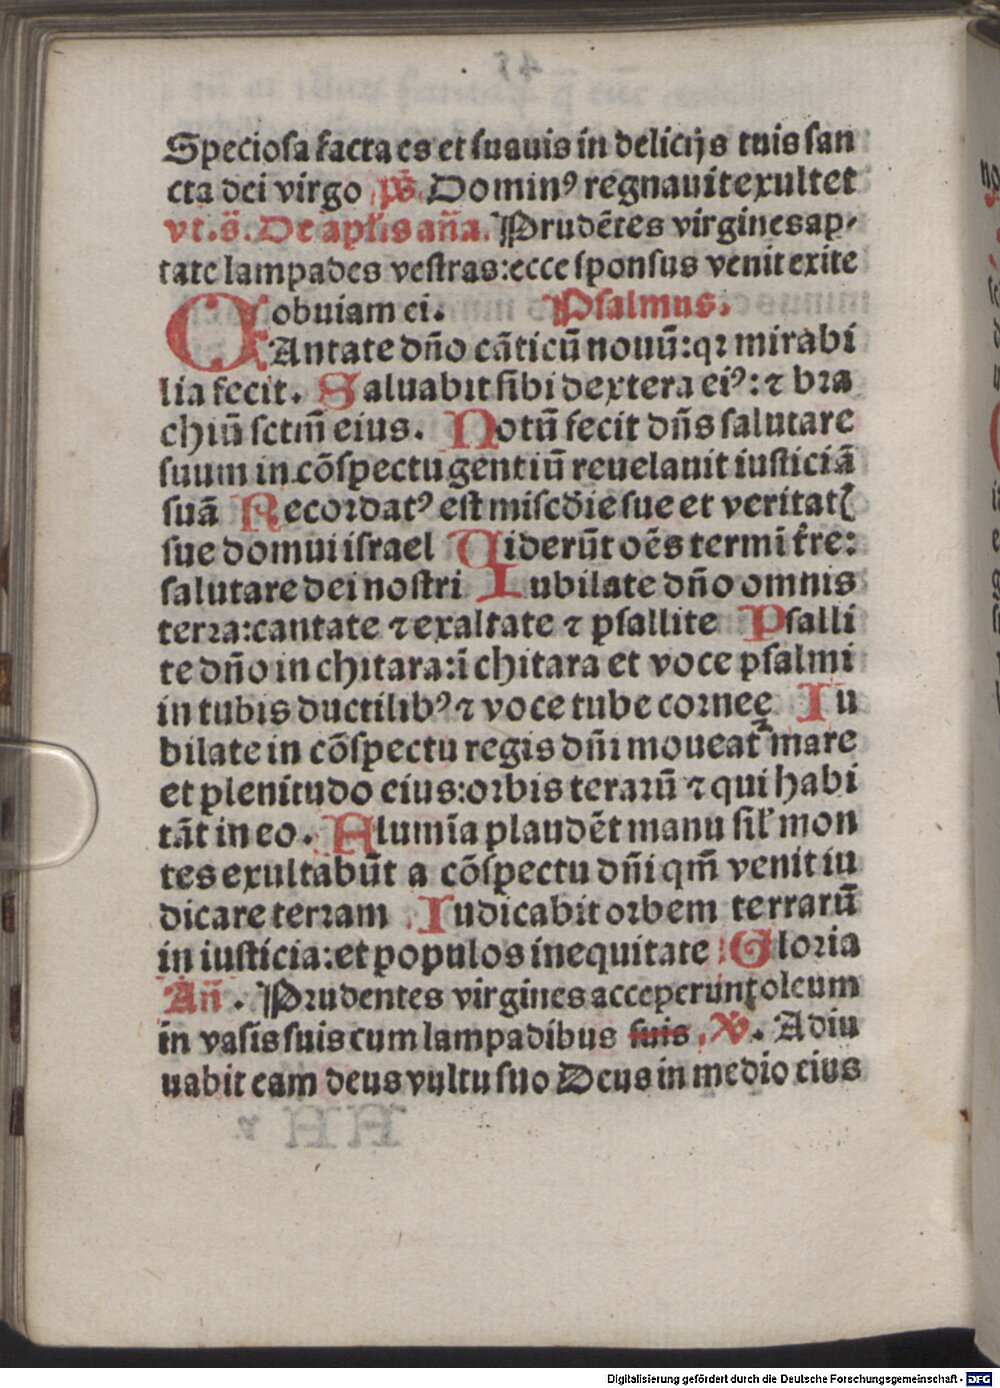 Speciosa facta es et suauis in delicijs tuis san
cta dei virgo ps̄. Domin⁹ regnauit exultet
vt. s̄. De apl̄is an̄a. Prudētes virgines ap⸗
tate lampades vestras: ecce sponsus venit exite
obuiam ei. Psalmus.
CAntate dño cāticū nouū: qꝛ mirabi
lia fecit. Saluabit sibi dextera ei⁹: ⁊ bꝛa
chiū sctm̄ eius. Notū fecit dñs salutare
suum in cōspectu gentiū reuelauit iusticiā
suā Recoꝛdat⁹ est misc̄die sue et veritatꝭ
sue domui israel Uiderūt oēs termi t̄re:
salutare dei nostri Iubilate dño omnis
terꝛa: cantate ⁊ exaltate ⁊ psallite Psalli
te dño in chitara: ī chitara et voce psalmi
in tubis ductilib⁹ ⁊ voce tube coꝛnee Iu
bilate in cōspectu regis dñi moueatꝛ mare
et plenitudo eius: oꝛbis teraꝛū ⁊ qui habi
tāt in eo. Flumīa plaudēt manu sil̄ mon
tes exultabūt a cōspectu dñi qm̄ venit iu
dicare terꝛam Iudicabit oꝛbem terrarū
in iusticia: et populos in equitate Gloꝛia
An̄. Pꝛudentes virgines acceperunt oleum
in vasis suis cum lampadibus suis ℣. Adiu
uabit eam deus vultu suo Deus in medio eius
Digitalisierung gefördert durch die Deutsche Forschungsgemeinschaft - DFG